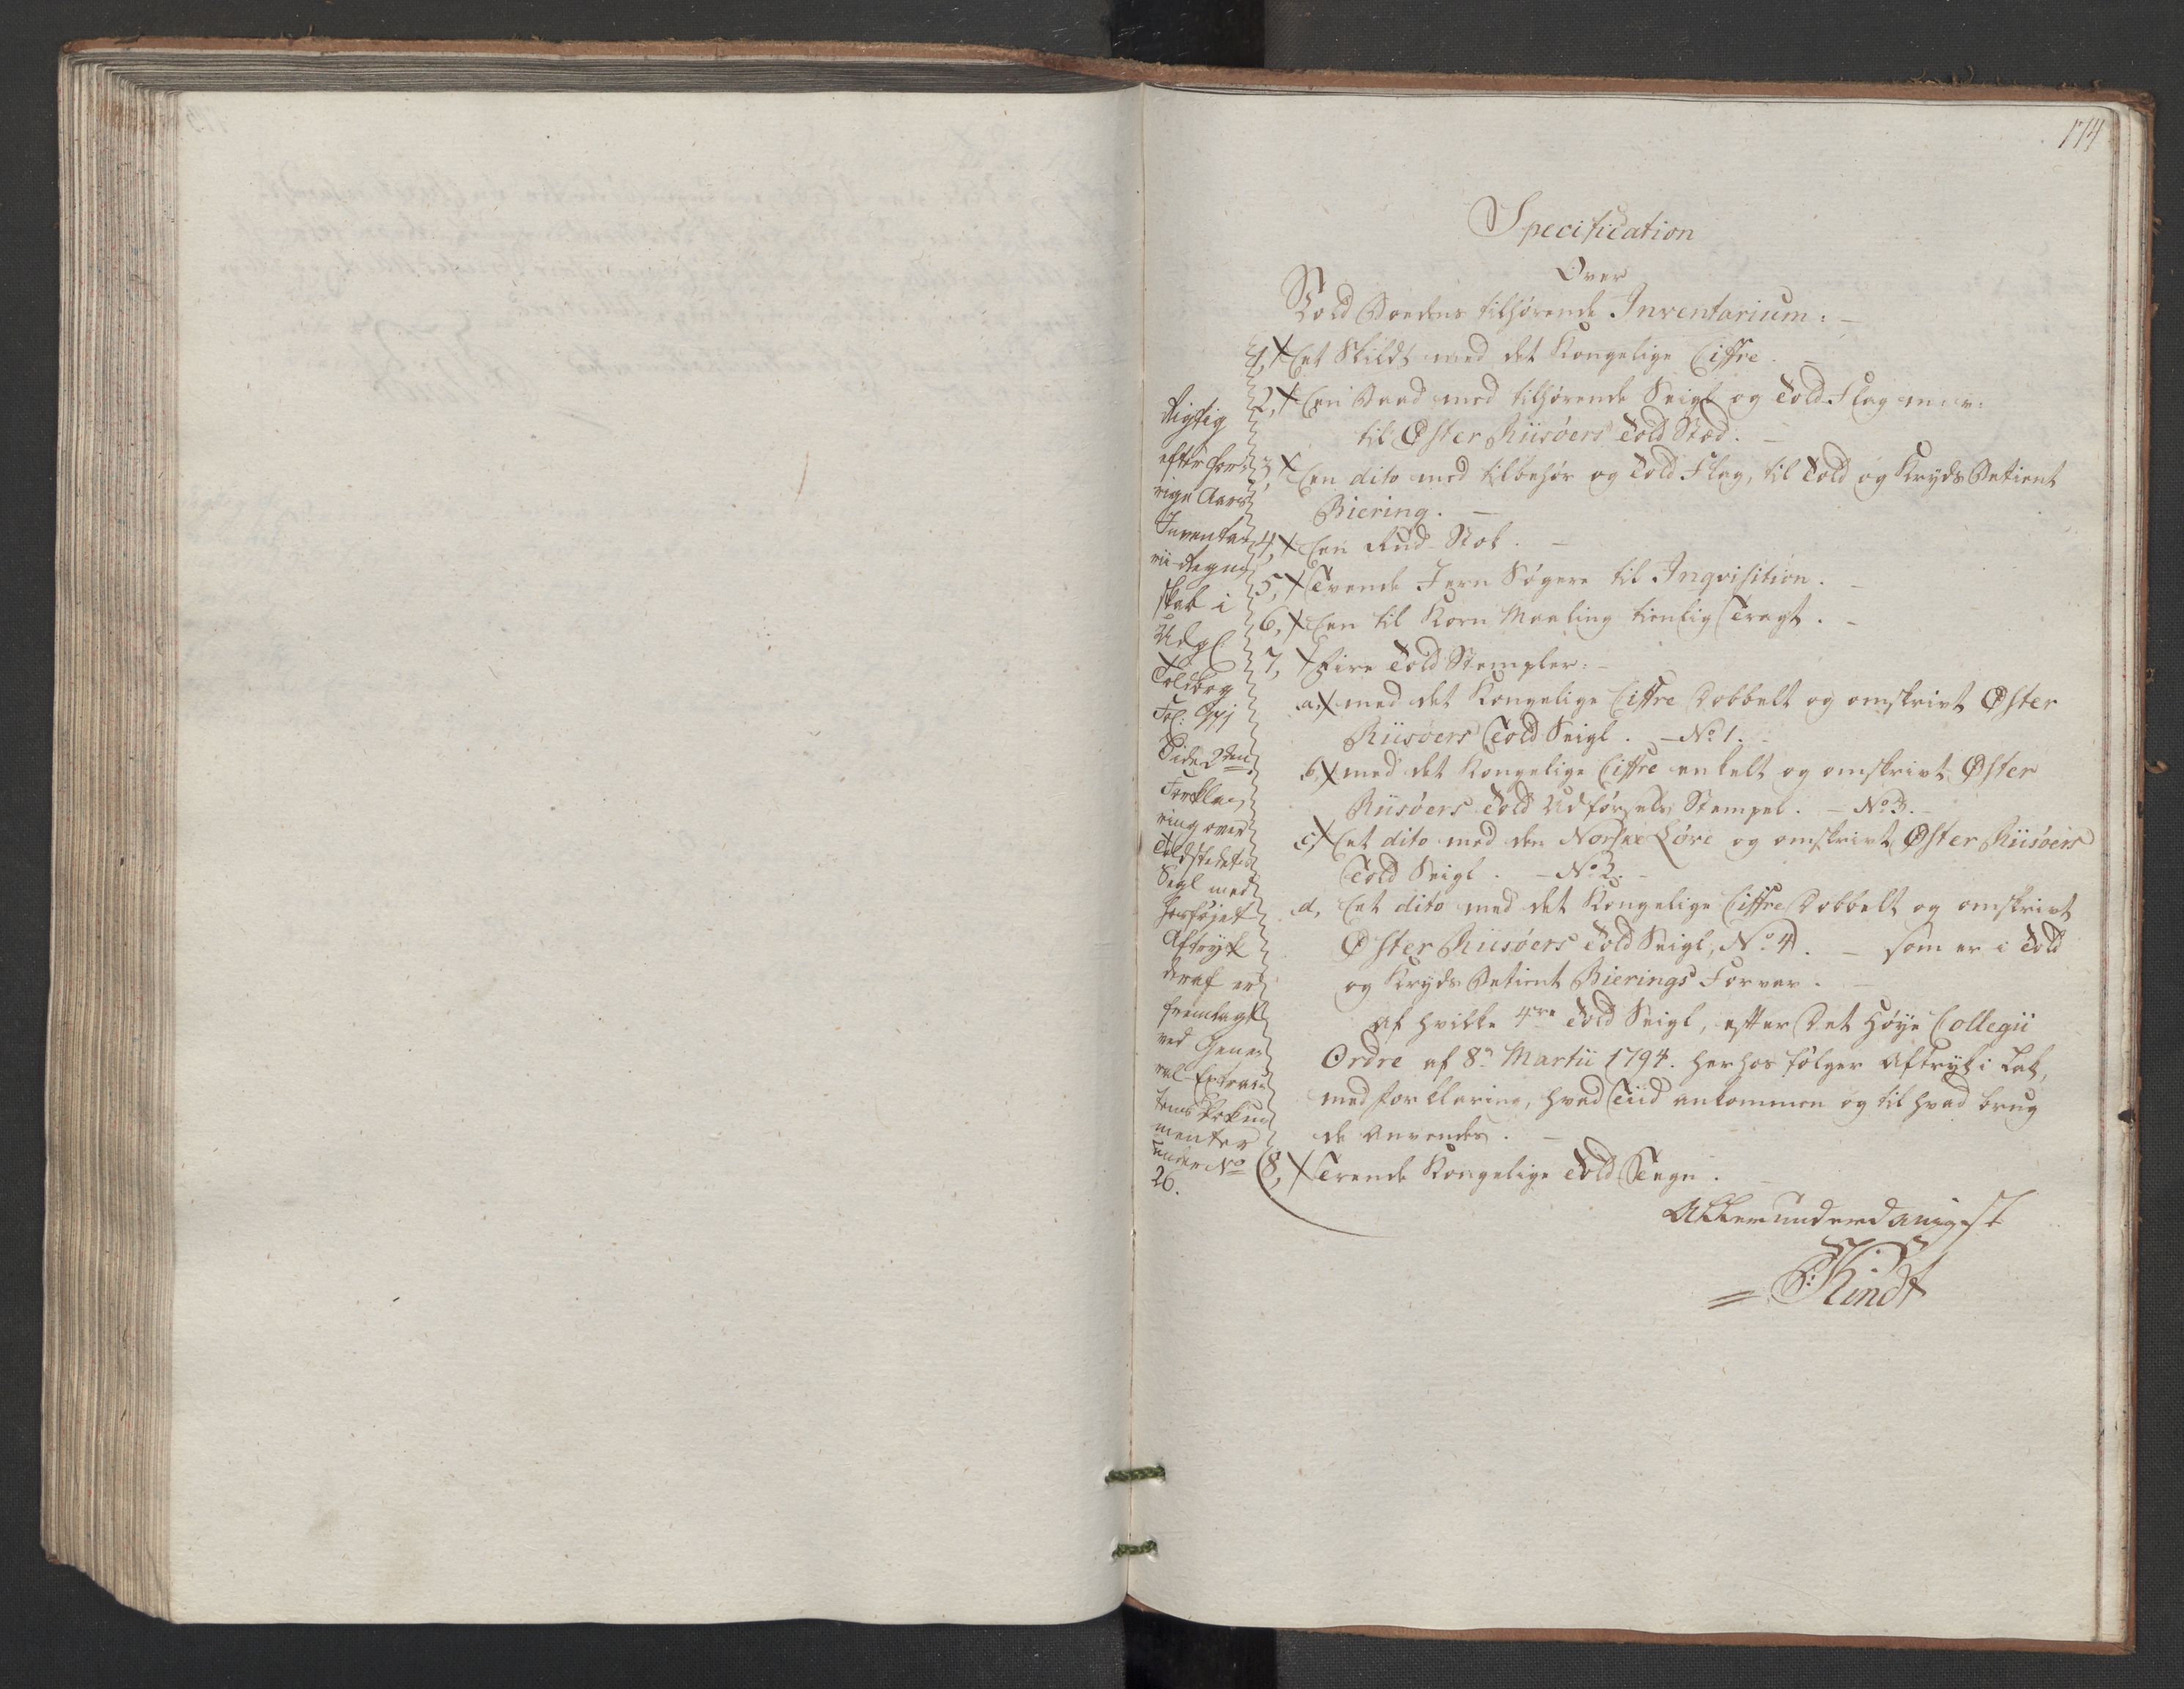 174
Specification
Over
Told Boedens tilhørende Inventarium. —
1, Eet Skildt med det Kongelige Ciffre. —
2, Een Baad med tilhørende Seigl og Told-Flag
til Øster Riisøers Told Stæd. —
3, Een dito med tilbehør og Told Flag, til Told og Kryds Betient
Biering. —
4, Een Rud-Stok. —
5, Tvende Jern Søgere til Inqvisition. —
6, Een til Korn Maaling tienlig Tragt. —
7, Fire Told Stempler: —
a, med det Kongelige Ciffre dobbelt og omskrivt Øster
Riisøers Told Seigl. — No 1. —
b, med det Kongelige Ciffre enkelt og omskrivt Øster
Riisøers Told Udførsels Stempel. — No 3. —
c, Eet dito med den Norske Löve og omskrivt Øster Riisøers
Told Seigl. — No 2. —
d, Eet dito med det Kongelige Ciffre dobbelt og omskrivt
Øster Riisøers Told Seigl, No 4. — som er i Told
og Kryds Betient Bierings Forvar. —
Af hvilke 4re Told Seigl, efter Det Høye Collegii
Ordre af 8n Martii 1794. herhos følger Aftryk i Lak,
med forklaring, hvad Tiid ankommen og til hvad brug
de anvendes. —
8, Trende Kongelige Told Tegn. —
Allerunderdanigst
Kindt
Rigtig
efter for-
rige Aars
Inventa-
rii-Regn-
skab i
Udgl
Toldbog
Fol:
Side 2den
Forkla-
ring over
Toldstedets
Segl med
hosføjet
Aftryk
deraf er
fremlagt
ved Gene-
ral-Extrac-
tens Doku-
menter
under No
26.